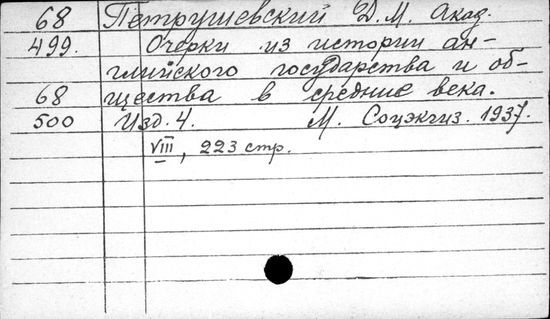 68 Петрушевский Д. М. Акад.
499. Очерки из истории ан-
глийского государства и об-
68 щества в средние века.
500 Изд. 4. М. Соцэкгиз. 1937.
VIII, 223 стр.